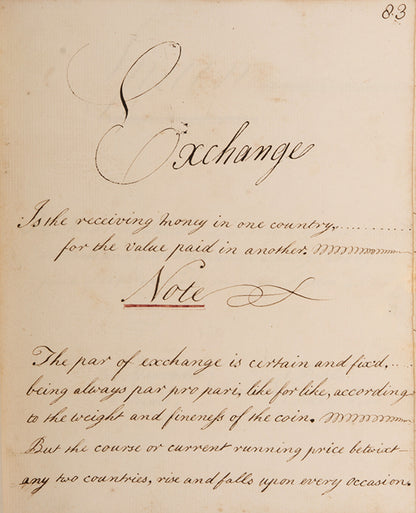 83
Exchange
Is the receiving money in one country,..........
for the value paid in another.
Note
The par of exchange is certain and fix'd,...
being always par pro pari, like for like, according
to the weight and fineness of the coin.
But the course or current running price betwixt
any two countries, rise and falls upon every occasion.